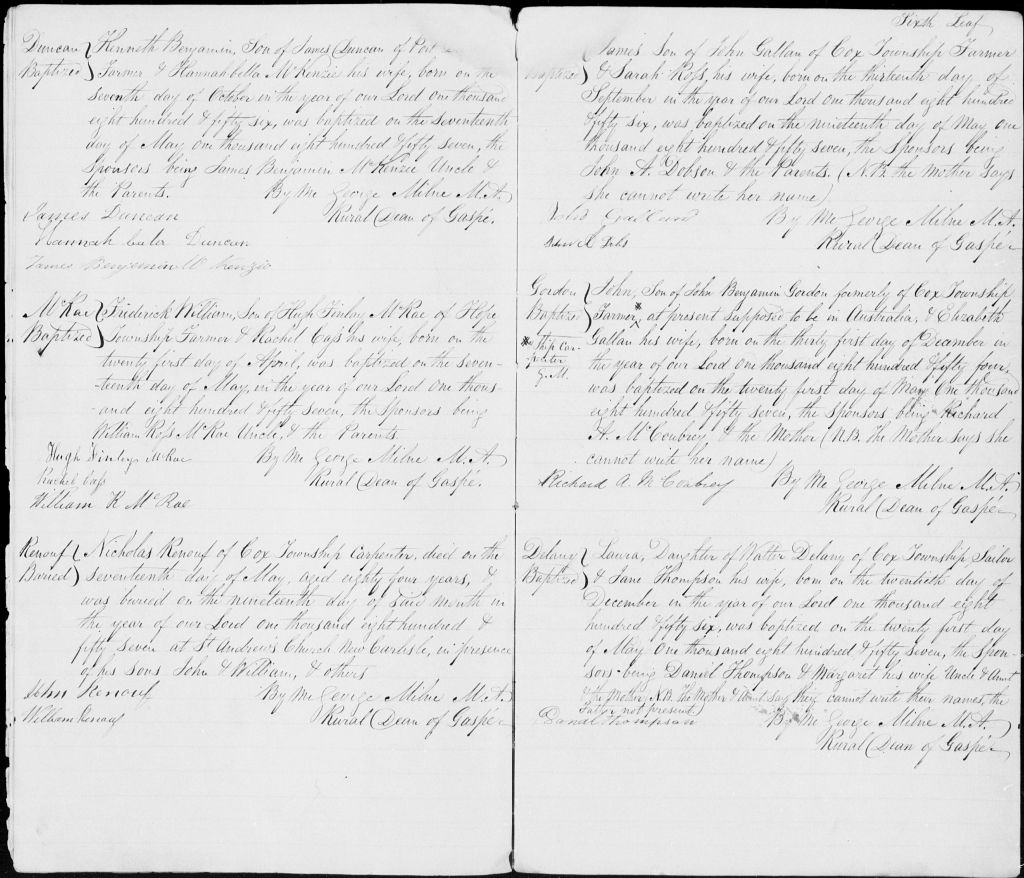 Duncan } Kenneth Benjamin, Son of James Duncan of Port
Baptized } Farmer & Hannahbella McKenzie his wife, born on the
seventh day of October in the year of our Lord one thousand
eight hundred & fifty six, was baptized on the seventeenth
day of May one thousand eight hundred & fifty seven, the
Sponsors being James Benjamin McKenzie Uncle &
the Parents. By Me George Milne M.A.
James Duncan Rural Dean of Gaspé.
Hannah bela Duncan
James Benjemin Mc Kenzie
McRae } Friderick William, Son of Hugh Finlay McRae of Hope
Baptized } Township Farmer & Rachel Cass his wife, born on the
twenty first day of April, was baptized on the seven-
-teenth day of May, in the year of our Lord one thous-
-and eight hundred & fifty seven, the Sponsors being
William Ross McRae Uncle, & the Parents.
Hugh Finlay McRae By Me George Milne M.A.
Rachel Cass Rural Dean of Gaspé.
William R McRae
Renouf } Nicholas Renouf of Cox Township Carpenter, died on the
Buried } seventeenth day of May, aged eighty four years, &
was buried on the nineteenth day of said month in
the year of our Lord one thousand eight hundred &
fifty seven at St Andrew's Church New Carlisle, in presence
of his sons John & William, & others
John Renouf By Me George Milne M.A.
William Renouf Rural Dean of Gaspé
Sixth Leaf
James Son of John Gallan of Cox Township Farmer
Baptized } & Sarah Ross, his wife, born on the thirteenth day of
September in the year of our Lord one thousand eight hundred
& fifty six, was baptized on the nineteenth day of May one
thousand eight hundred & fifty seven, the Sponsors being
John A. Dobson & the Parents. (N.B. the Mother says
she cannot write her name)
By Me George Milne M.A.
Rural Dean of Gaspé
Gordon } John, Son of John Benjamin Gordon formerly of Cox Township
Baptized } Farmer,* at present supposed to be in Australia, & Elizabeth
* Ship Car-
penter
G.M.
Gallan his wife, born on the thirty first day of December in
the year of our Lord one thousand eight hundred & fifty four,
was baptized on the twenty first day of May One thousand
eight hundred & fifty seven, the Sponsors being Richard
A. McCoubrey, & the Mother (N.B. The Mother says she
cannot write her name)
Richard A. McCoubrey By Me George Milne M.A.
Rural Dean of Gaspé
Delany } Laura, Daughter of Walter Delany of Cox Township Sailor
Baptized } & Jane Thompson his wife, born on the twentieth day of
December in the year of our Lord one thousand eight
hundred & fifty six, was baptized on the twenty first day
of May one thousand eight hundred & fifty seven, the Spon-
sors being Daniel Thompson & Margaret his wife Uncle & Aunt
& the Mother, N.B. The Mother & Aunt say they cannot write their names, the
Father not present)
Daniel Thompson By Me George Milne M.A.
Rural Dean of Gaspé